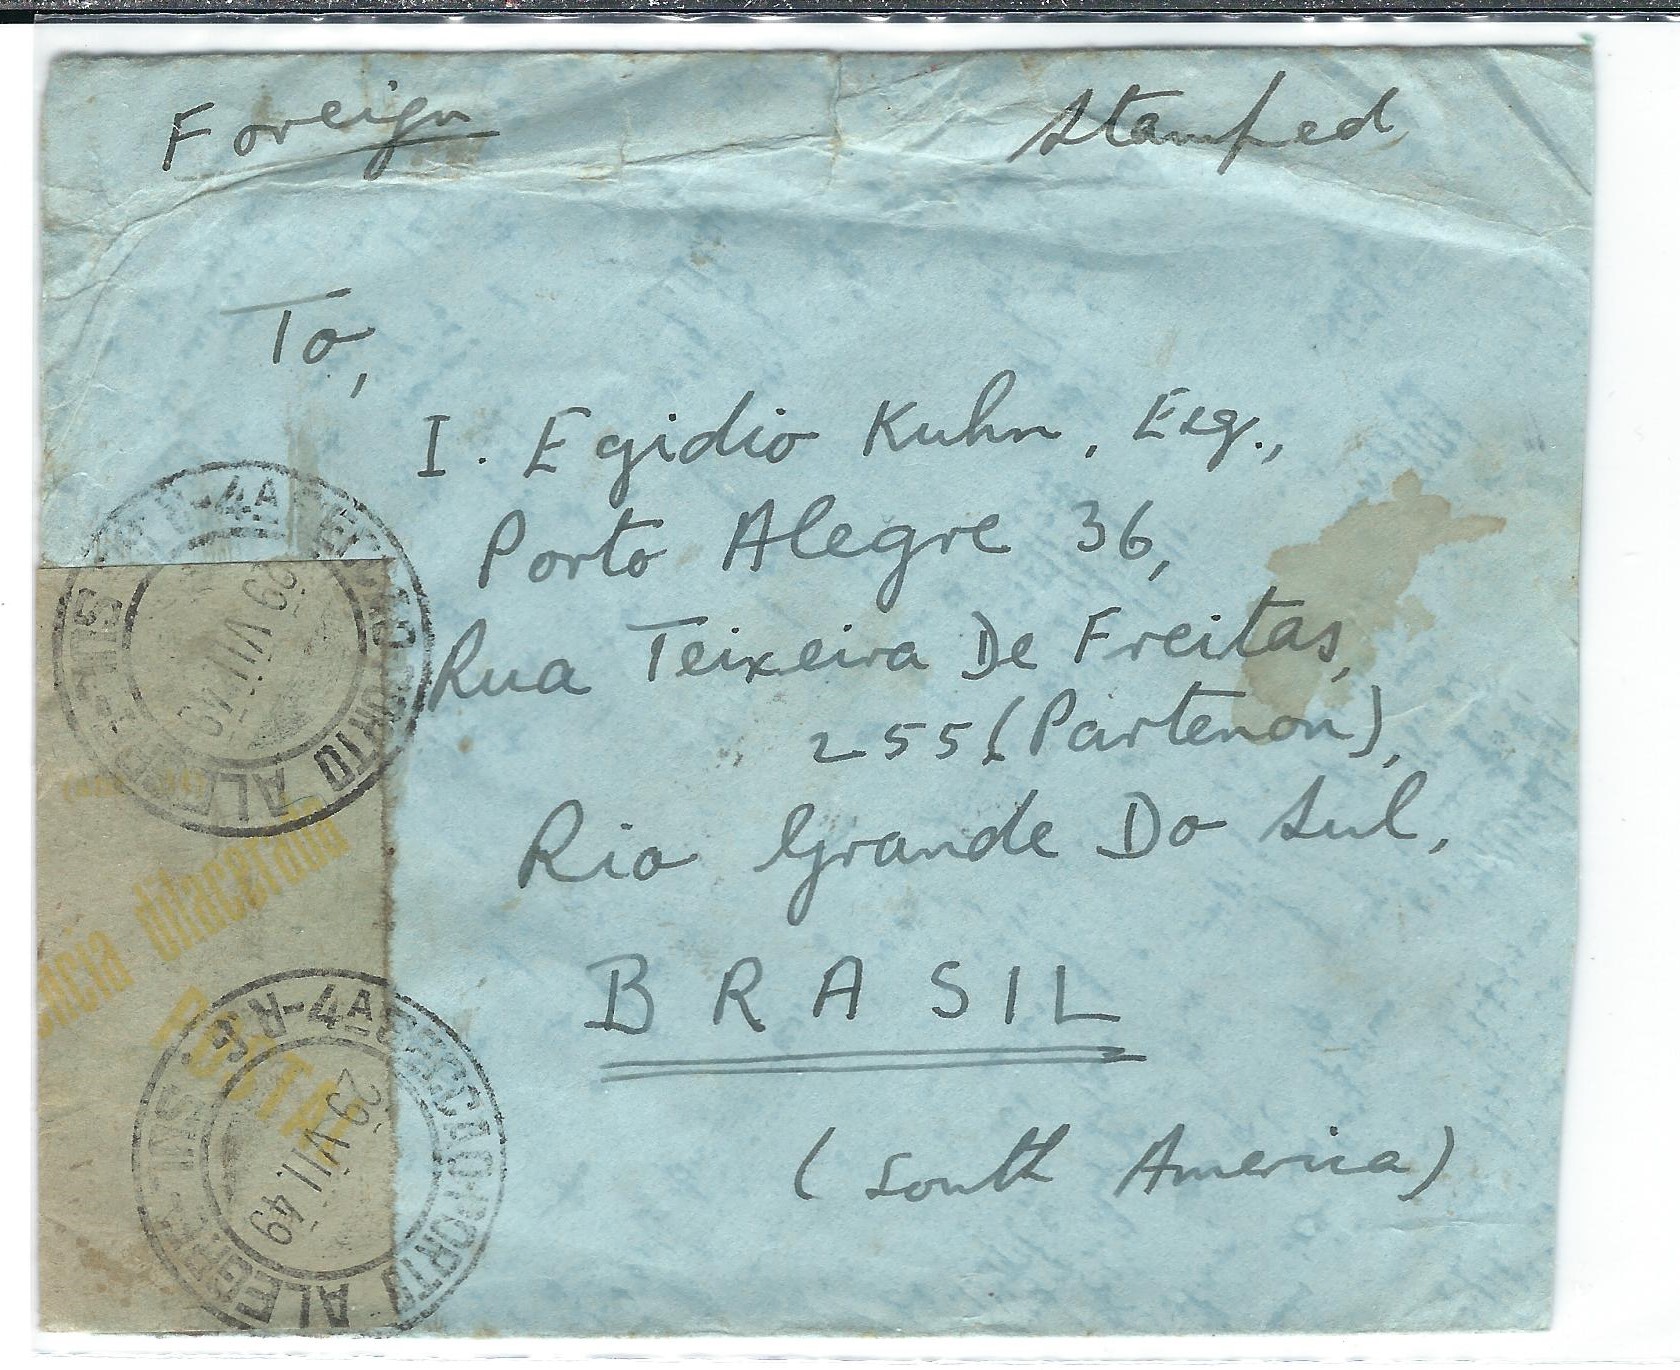 Foreign
Stamped
To,
I. Egidio Kuhn, Esq.,
Porto Alegre 36,
Rua Teixeira De Freitas,
255 (Partenon),
Rio Grande Do Sul,
BRASIL
(South America)
4A SECCAO PORTO ALEGRE
29 VII 49
dilacerada
4A SECCAO PORTO ALEGRE
29 VII 49